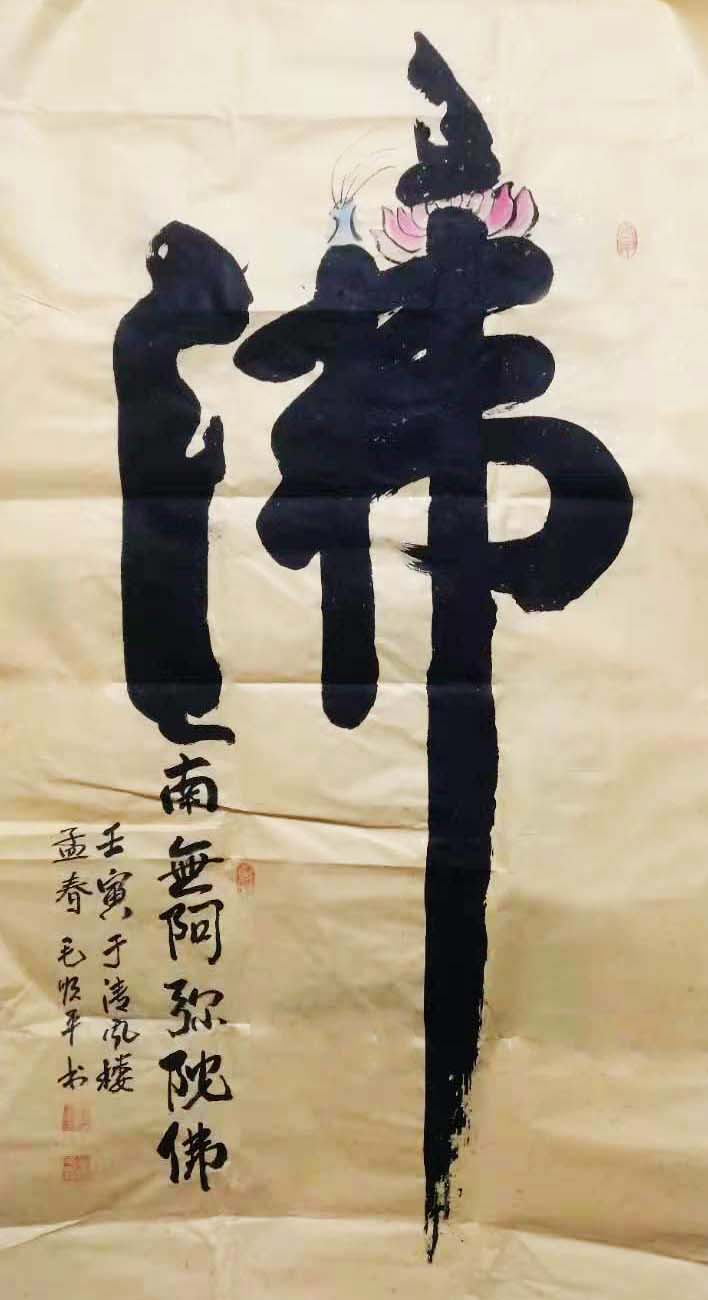 佛
南無阿弥陀佛
壬寅于清风楼
孟春毛顺平书